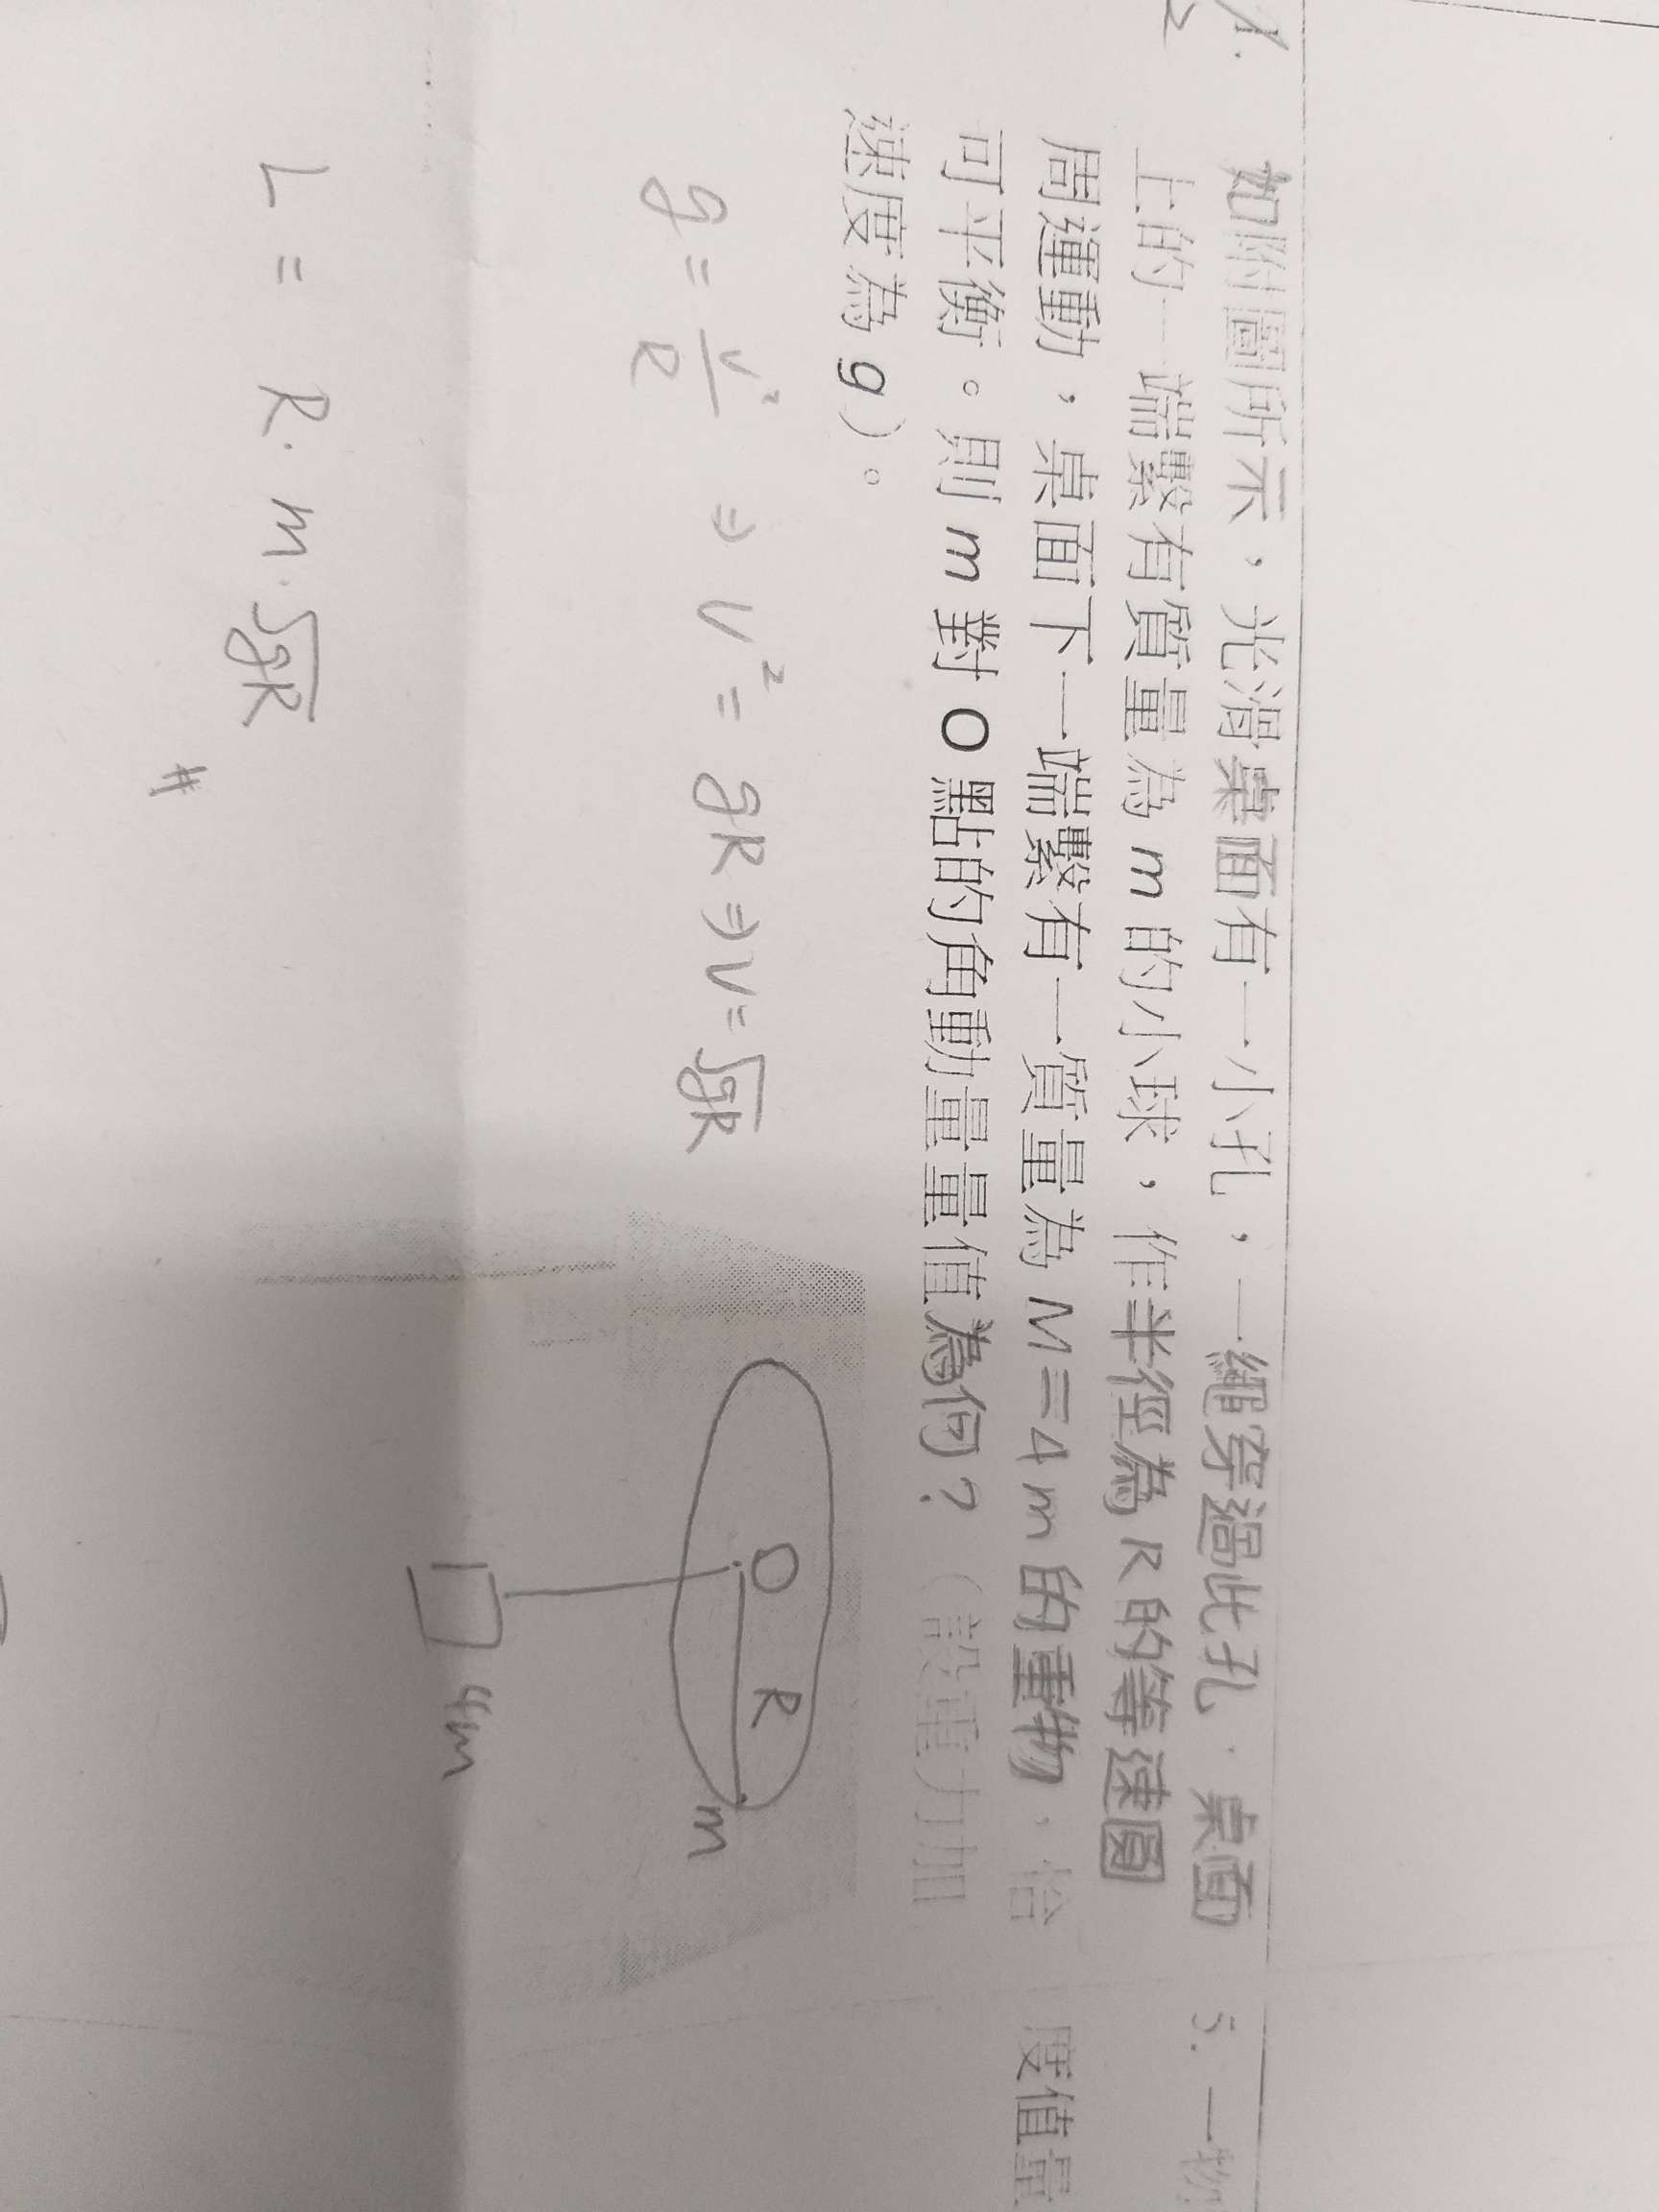 如附圖所示，光滑桌面有一小孔，一繩穿過此孔，桌面
上的一端繫有質量為 m 的小球，作半徑為 R 的等速圓
周運動，桌面下一端繫有一質量為 M＝4m 的重物，恰
可平衡。則 m 對 O 點的角動量量值為何？（設重力加
速度為 g）。
g = v²/R ⇒ v² = gR ⇒ v = √gR
O R
m
4m
L = R · m · √gR
#
5. 一物
度值量